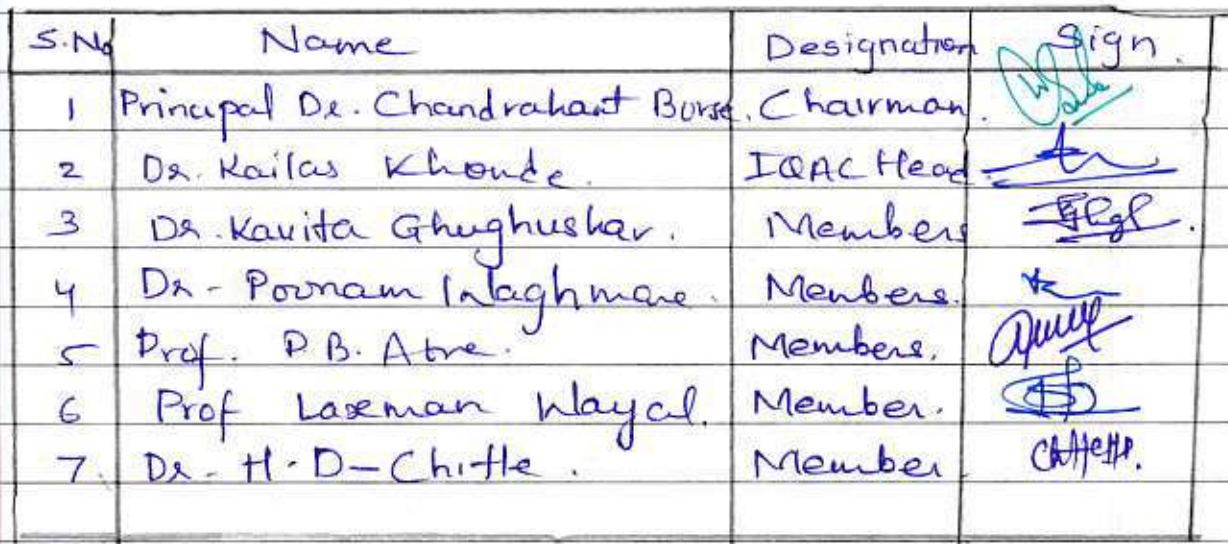 S.No Name Designation Sign.
1 Principal Dr. Chandrakant Borse. Chairman.
2 Dr. Kailas Khonde. IQAC Head
3 Dr. Kavita Ghughuskar. Members
4 Dr - Poonam Waghmare. Members.
5 Prof. P.B. Atre. Members.
6 Prof Laxman Wayal. Member.
7. Dr - H.D - Chitte. Member